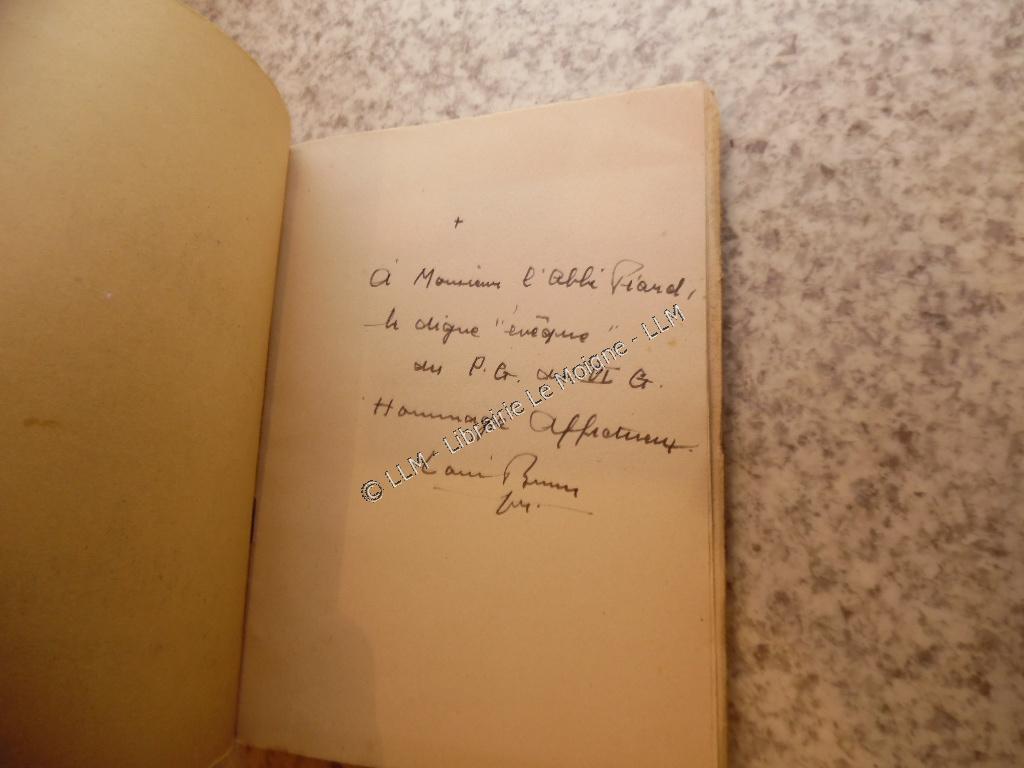 +
à Monsieur l'abbé Piard,
le digne "évêque"
des P.G. du VI G.
Hommage affectueux
Louis
© LLM - Librairie Le Moigne - LLM